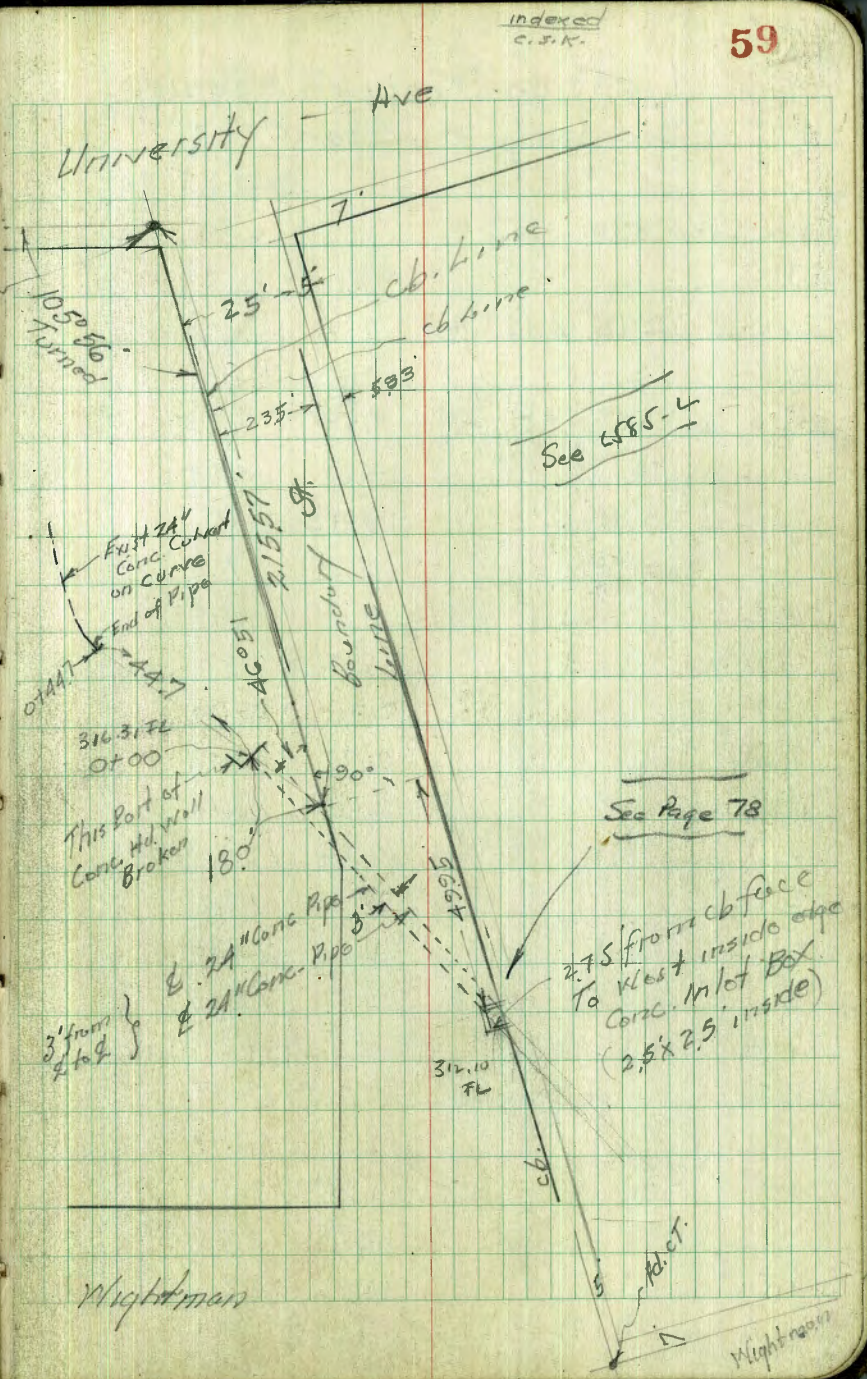 indexed
C.S.K.
59
University - Ave
7'
25' - 5'
cb. Line
cb Line
105°56'
Turned
23.5'
5.83'
See 1585-4
215.57'
St.
Boundary
Line
Exist 24"
Conc. Culvert
on Curve
End of Pipe
0+44.7
44.7
46°51'
316.31 FL
0+00
This Part of
Conc. Hd. Wall
Broken
90°
18.0'
7
See Page 78
49.95
℄ 24" Conc Pipe
3'
℄ 24" Conc. Pipe
3' from
℄ to ℄
2.75' from cb face
To West inside edge
Conc. Inlet Box
(2.5' x 2.5' inside)
312.10
FL
cb.
Wightman
5'
Hd. CT.
7
Wightman